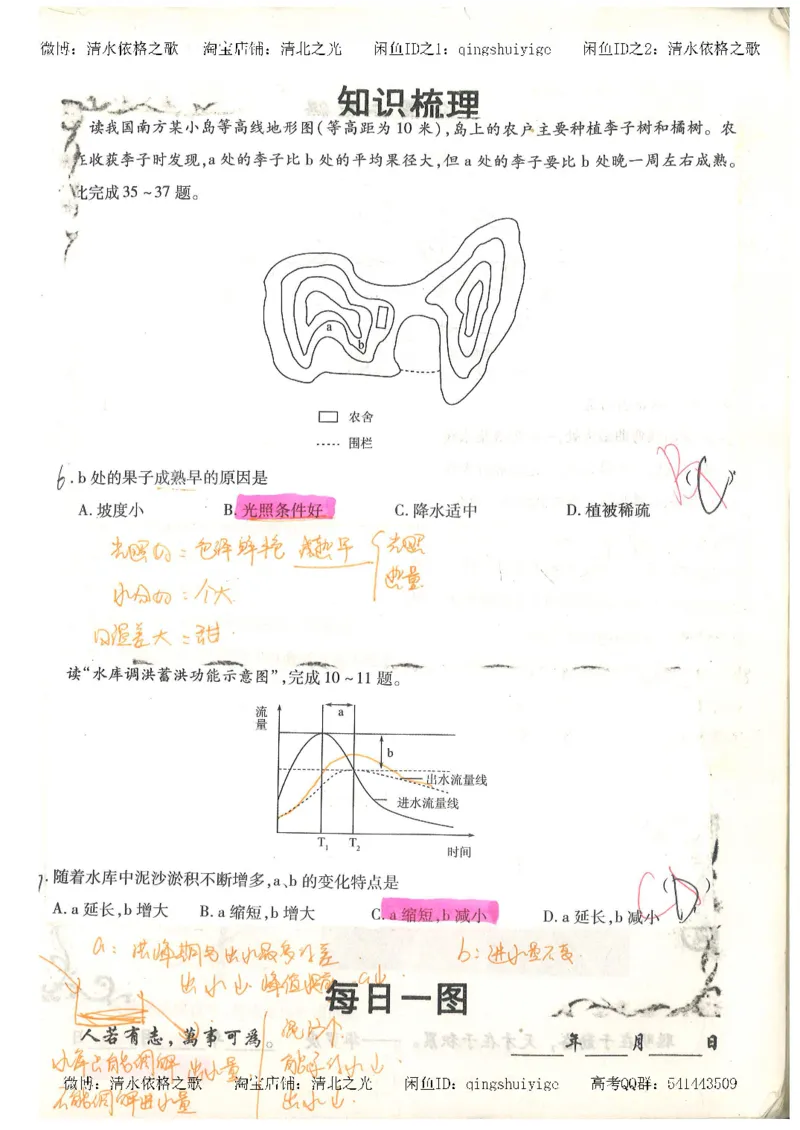 微博：清水依格之歌 淘宝店铺：清北之光 闲鱼ID之1：qingshuiyige 闲鱼ID之2：清水依格之歌
知识梳理
读我国南方某小岛等高线地形图(等高距为 10 米),岛上的农户主要种植李子树和橘树。农
在收获李子时发现,a 处的李子比 b 处的平均果径大,但 a 处的李子要比 b 处晚一周左右成熟。
此完成 35～37 题。
a
b
农舍
围栏
6. b 处的果子成熟早的原因是 ( )
A. 坡度小 B. 光照条件好 C. 降水适中 D. 植被稀疏
光照好：色泽鲜艳 成熟早 光照
热量
水分好：个大
日温差大：甜
读“水库调洪蓄洪功能示意图”,完成 10～11 题。
流量
a
b
出水流量线
进水流量线
T1 T2
时间
7. 随着水库中泥沙淤积不断增多,a、b 的变化特点是 ( )
A. a 延长,b 增大 B. a 缩短,b 增大 C. a 缩短,b 减小 D. a 延长,b 减小
a：洪峰期与出水最多的差
b：进水量不变
出水小 峰值提前 a小
每日一图
人若有志，萬事可為。
年 月 日
水库只能调解出水量
不能调解进水量
出水小
微博：清水依格之歌 淘宝店铺：清北之光 闲鱼ID：qingshuiyige 高考QQ群：541443509